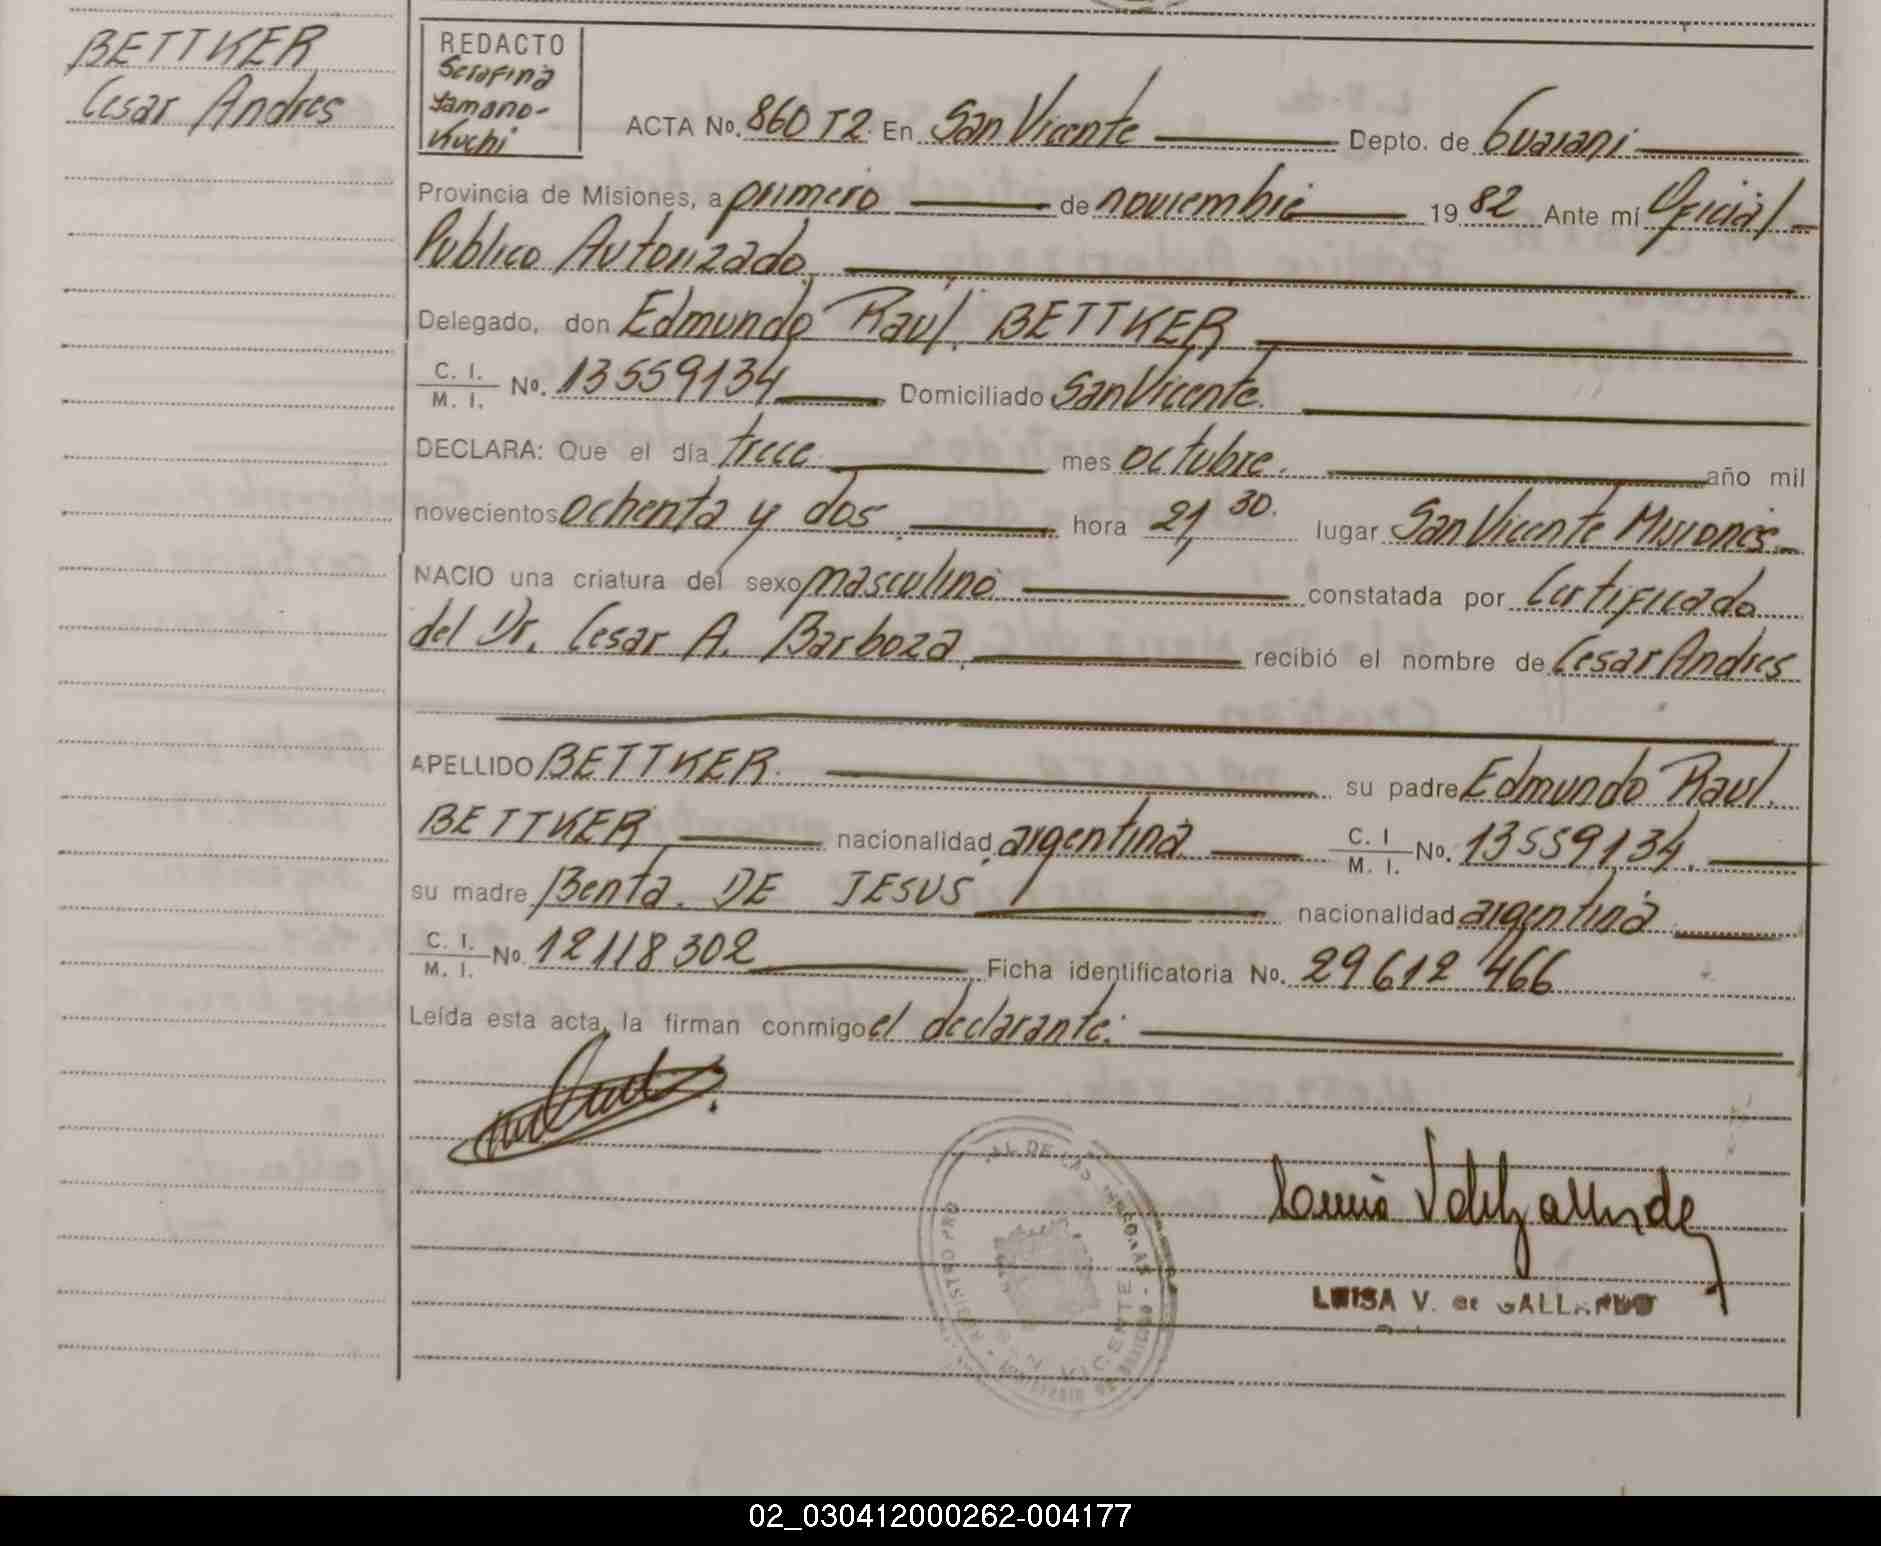 BETTKER
Cesar Andres
REDACTO
Serafina
Yamano-
Kuchi
ACTA No. 860 T2. En San Vicente Depto. de Guarani
Provincia de Misiones, a primero de noviembre 1982 Ante mí Oficial
Publico Autorizado.
Delegado, don Edmundo Raul. BETTKER
C. I. / M. I. No. 13559134 Domiciliado San Vicente.
DECLARA: Que el día trece mes octubre. año mil
novecientos ochenta y dos hora 21,30. lugar San Vicente Misiones
NACIO una criatura del sexo masculino constatada por Certificado
del Dr. Cesar A. Barboza recibió el nombre de Cesar Andres
APELLIDO BETTKER. su padre Edmundo Raul.
BETTKER nacionalidad argentina C. I / M. I. No. 13559134.
su madre Benta. DE JESUS nacionalidad argentina
C. I. / M. I. No. 12118302 Ficha identificatoria No. 29612466
Leída esta acta, la firman conmigo el declarante.
LUISA V. de GALLARDO
02_030412000262-004177